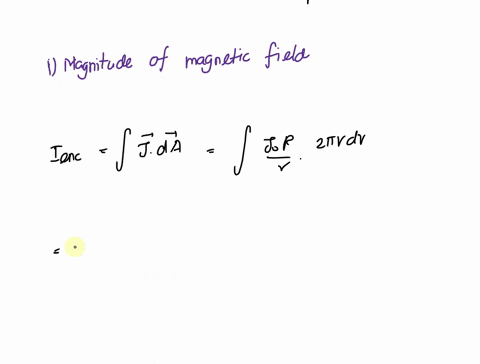 i) Magnitude of magnetic field
I_enc = ∫ J⃗ . dA⃗ = ∫ J₀R/r . 2πrdr
=